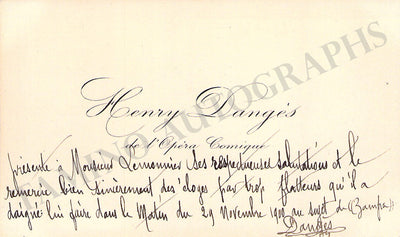 Henry Dangès
de l'Opéra Comique
présente à Monsieur Lemonnier ses respectueuses salutations et le
remercie bien sincèrement des éloges par trop flatteurs qu'il a
daigné lui faire dans le Matin du 29 Novembre au sujet de (Zampa).
Dangès
TAMINO AUTOGRAPHS